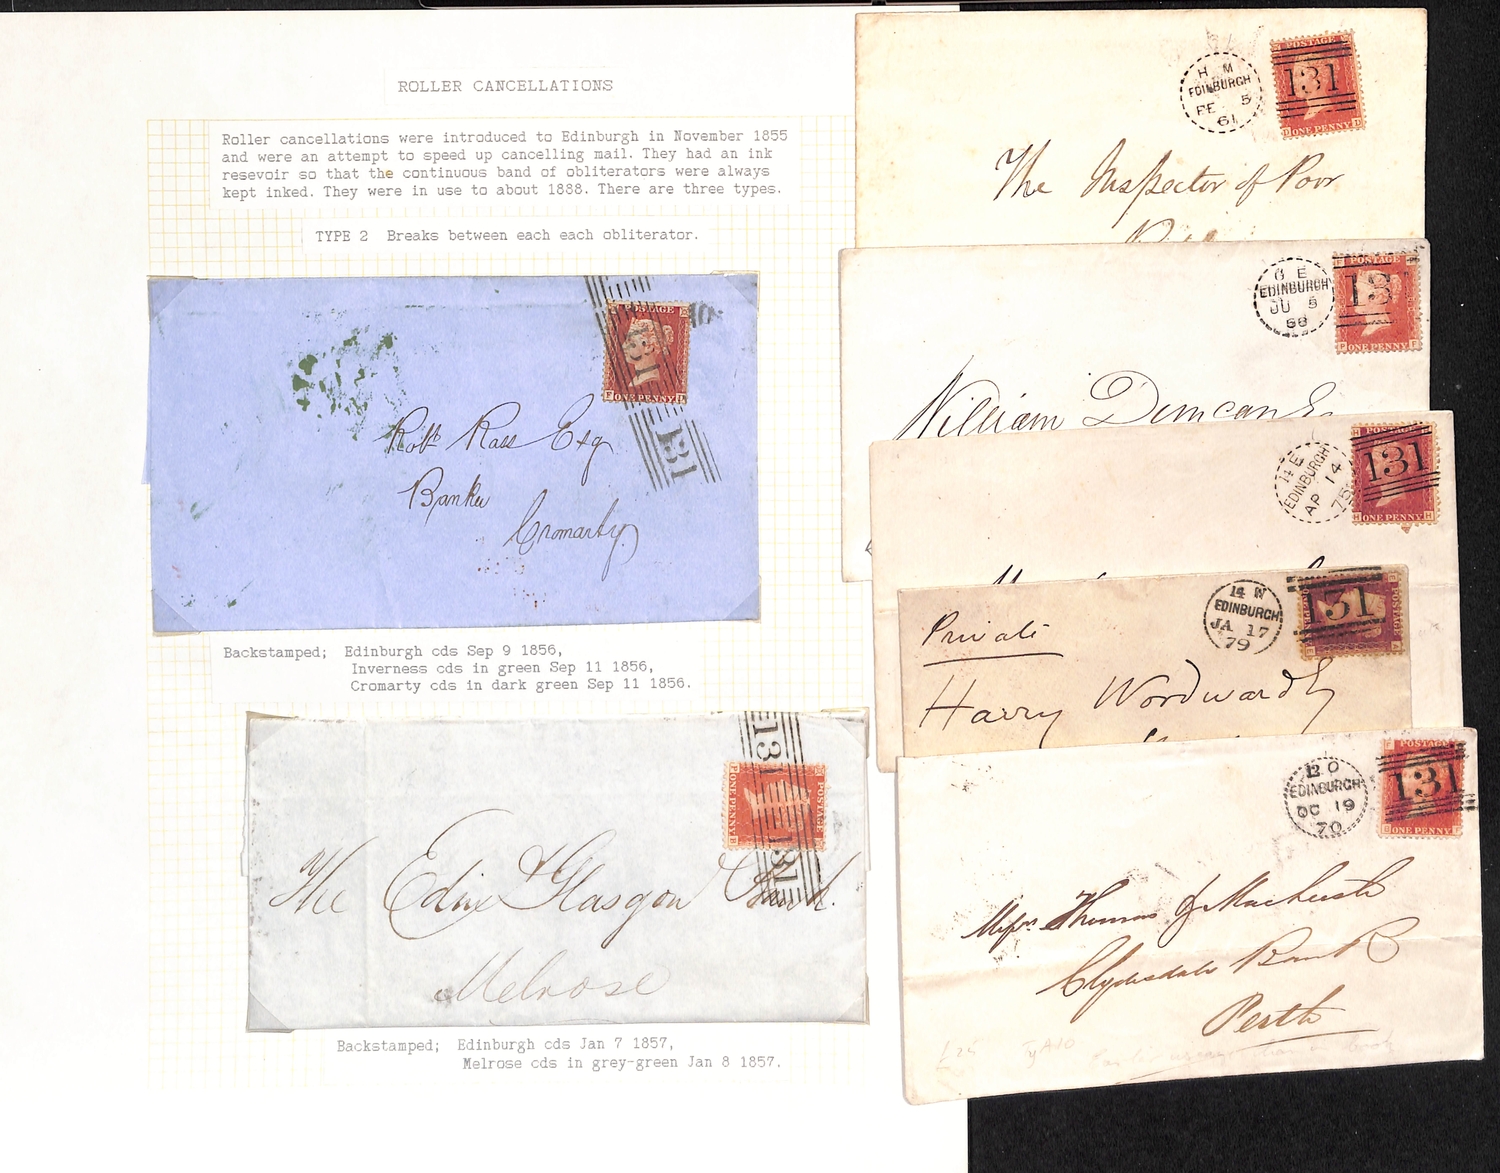 ROLLER CANCELLATIONS
Roller cancellations were introduced to Edinburgh in November 1855
and were an attempt to speed up cancelling mail. They had an ink
resevoir so that the continuous band of obliterators were always
kept inked. They were in use to about 1888. There are three types.
TYPE 2 Breaks between each each obliterator.
131
POSTAGE
ONE PENNY
131
Robt Ross Esq
Banker
Cromarty
Backstamped; Edinburgh cds Sep 9 1856,
Inverness cds in green Sep 11 1856,
Cromarty cds in dark green Sep 11 1856.
131
POSTAGE
ONE PENNY
131
The Edinr & Glasgow Bank.
Melrose
Backstamped; Edinburgh cds Jan 7 1857,
Melrose cds in grey-green Jan 8 1857.
H M
EDINBURGH
FE 5
61
POSTAGE
131
ONE PENNY
The Inspector of Poor
EDINBURGH
68
POSTAGE
13
ONE PENNY
William Duncan
14 E
EDINBURGH
AP 14
75
POSTAGE
131
ONE PENNY
14 W
EDINBURGH
JA 17
79
131
POSTAGE
Private
Harry
EDINBURGH
OC 19
70
POSTAGE
131
ONE PENNY
Messrs Thomas &
Clydesdale Bank
Perth
£25